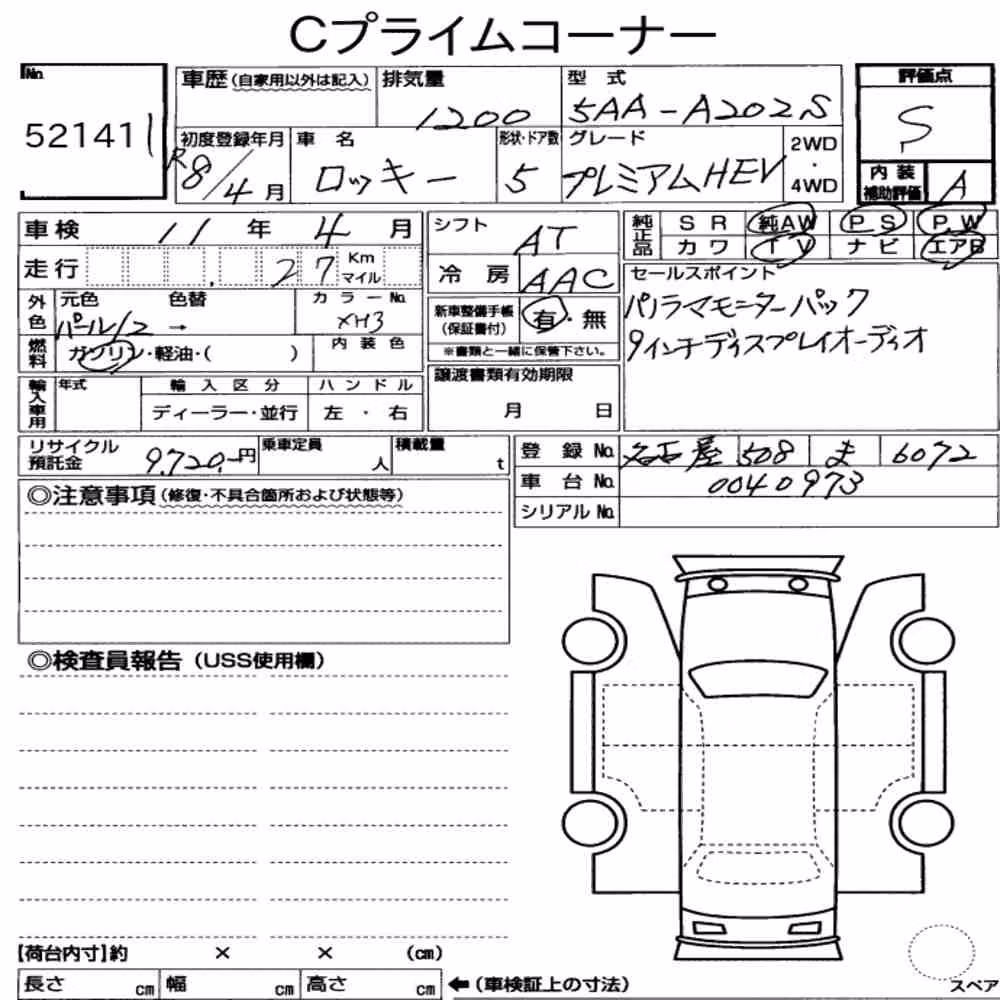 Cプライムコーナー
No.
521411
車歴 (自家用以外は記入)
排気量
1200
型 式
5AA-A202S
評価点
S
初度登録年月
R8/4月
車 名
ロッキー
形状・ドア数
5
グレード
プレミアムHEV
2WD
・
4WD
内 装
補助評価
A
車検 11 年 4 月
シフト
AT
純正品
SR 純AW PS PW
カワ TV ナビ エアB
走行 27 Km
マイル
冷房 AAC
セールスポイント
パノラマモニターパック
9インチディスプレイオーディオ
外色
元色 色替
パール12 →
カラーNo.
XH3
新車整備手帳
(保証書付)
有・無
※書類と一緒に保管下さい。
燃料
ガソリン・軽油・( )
内装色
輸入車用
年式
輸入区分
ディーラー・並行
ハンドル
左 ・ 右
譲渡書類有効期限
月 日
リサイクル
預託金
9,720.-円
乗車定員
人
積載量
t
登 録 No. 名古屋 508 ま 6072
車 台 No. 0040973
シリアル No.
◎注意事項(修復・不具合箇所および状態等)
◎検査員報告(USS使用欄)
【荷台内寸】約 × × (cm)
長さ cm 幅 cm 高さ cm
←(車検証上の寸法)
スペア